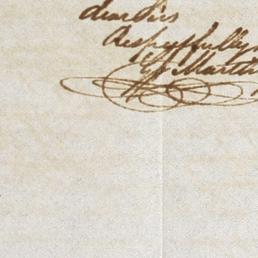 dear Sirs
Respectfully
Martin